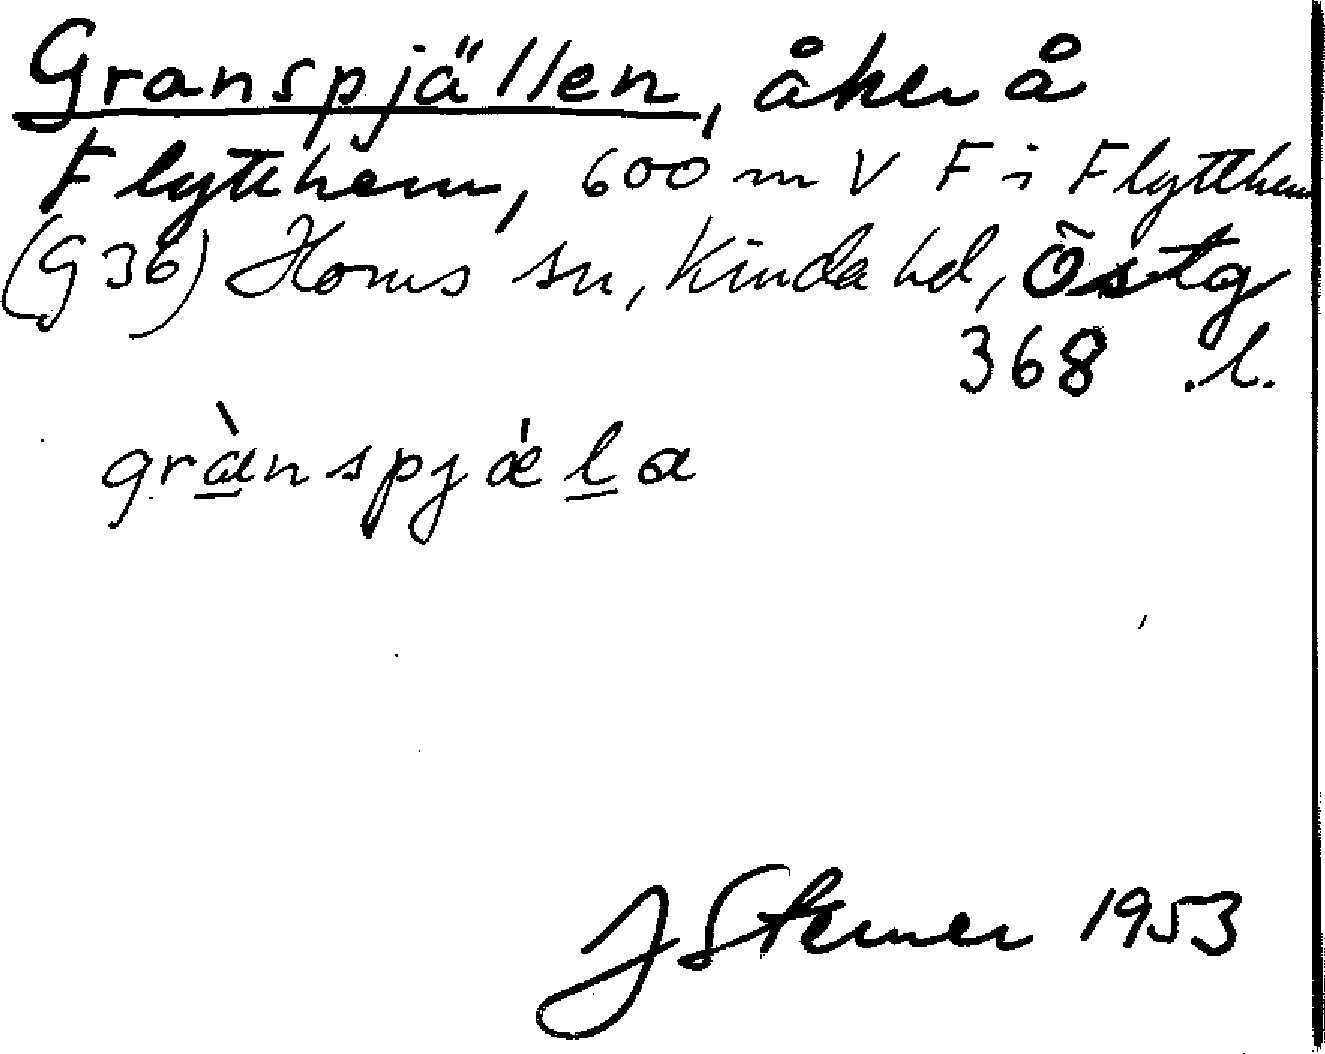 Granspjällen, åker å
Flytthem, 600 m V F i Flytthem
(G 36) Horns sn, Kinda hd, Östg
368 .l.
grànspjǽla
J Sterner 1953